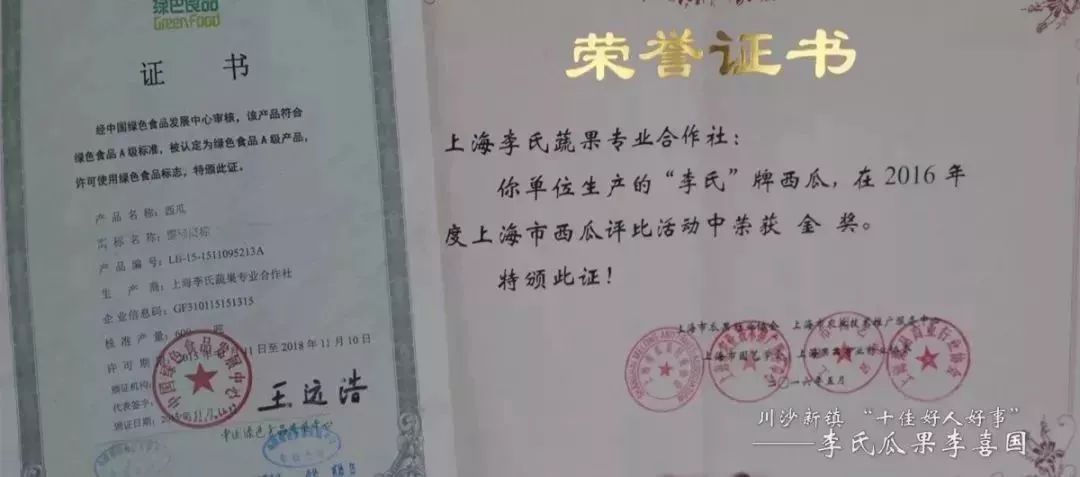 绿色食品
GreenFood
证 书
经中国绿色食品发展中心审核，该产品符合
绿色食品A级标准，被认定为绿色食品A级产品，
许可使用绿色食品标志，特颁此证。
产品名称：西瓜
商标名称：
产品编号：LB-15-1511095213A
生 产 商：上海李氏蔬果专业合作社
企业信息码：GF310115151315
核准产量：600 吨
许可期 11日至2018年11月10日
颁证机构：
代表签字： 王远浩
颁证日期：
中国绿色食品发展中心
荣誉证书
上海李氏蔬果专业合作社：
你单位生产的“李氏”牌西瓜，在2016年
度上海市西瓜评比活动中荣获 金 奖。
特颁此证！
上海市瓜果行业协会 上海市农业技术推广服务中心
上海市园艺学会
一六年五月
川沙新镇 “十佳好人好事”
——李氏瓜果李喜国